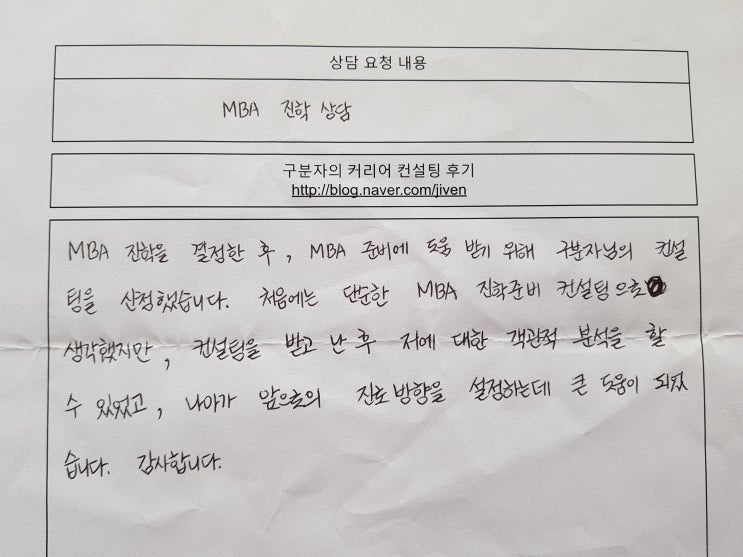 상담 요청 내용
MBA 진학 상담
구분자의 커리어 컨설팅 후기
http://blog.naver.com/jiven
MBA 진학을 결정한 후, MBA 준비에 도움 받기 위해 구분자님의 컨설
팅을 신청했습니다. 처음에는 단순한 MBA 진학준비 컨설팅으로
생각했지만, 컨설팅을 받고 난 후 저에 대한 객관적 분석을 할
수 있었고, 나아가 앞으로의 진로 방향을 설정하는데 큰 도움이 되었
습니다. 감사합니다.